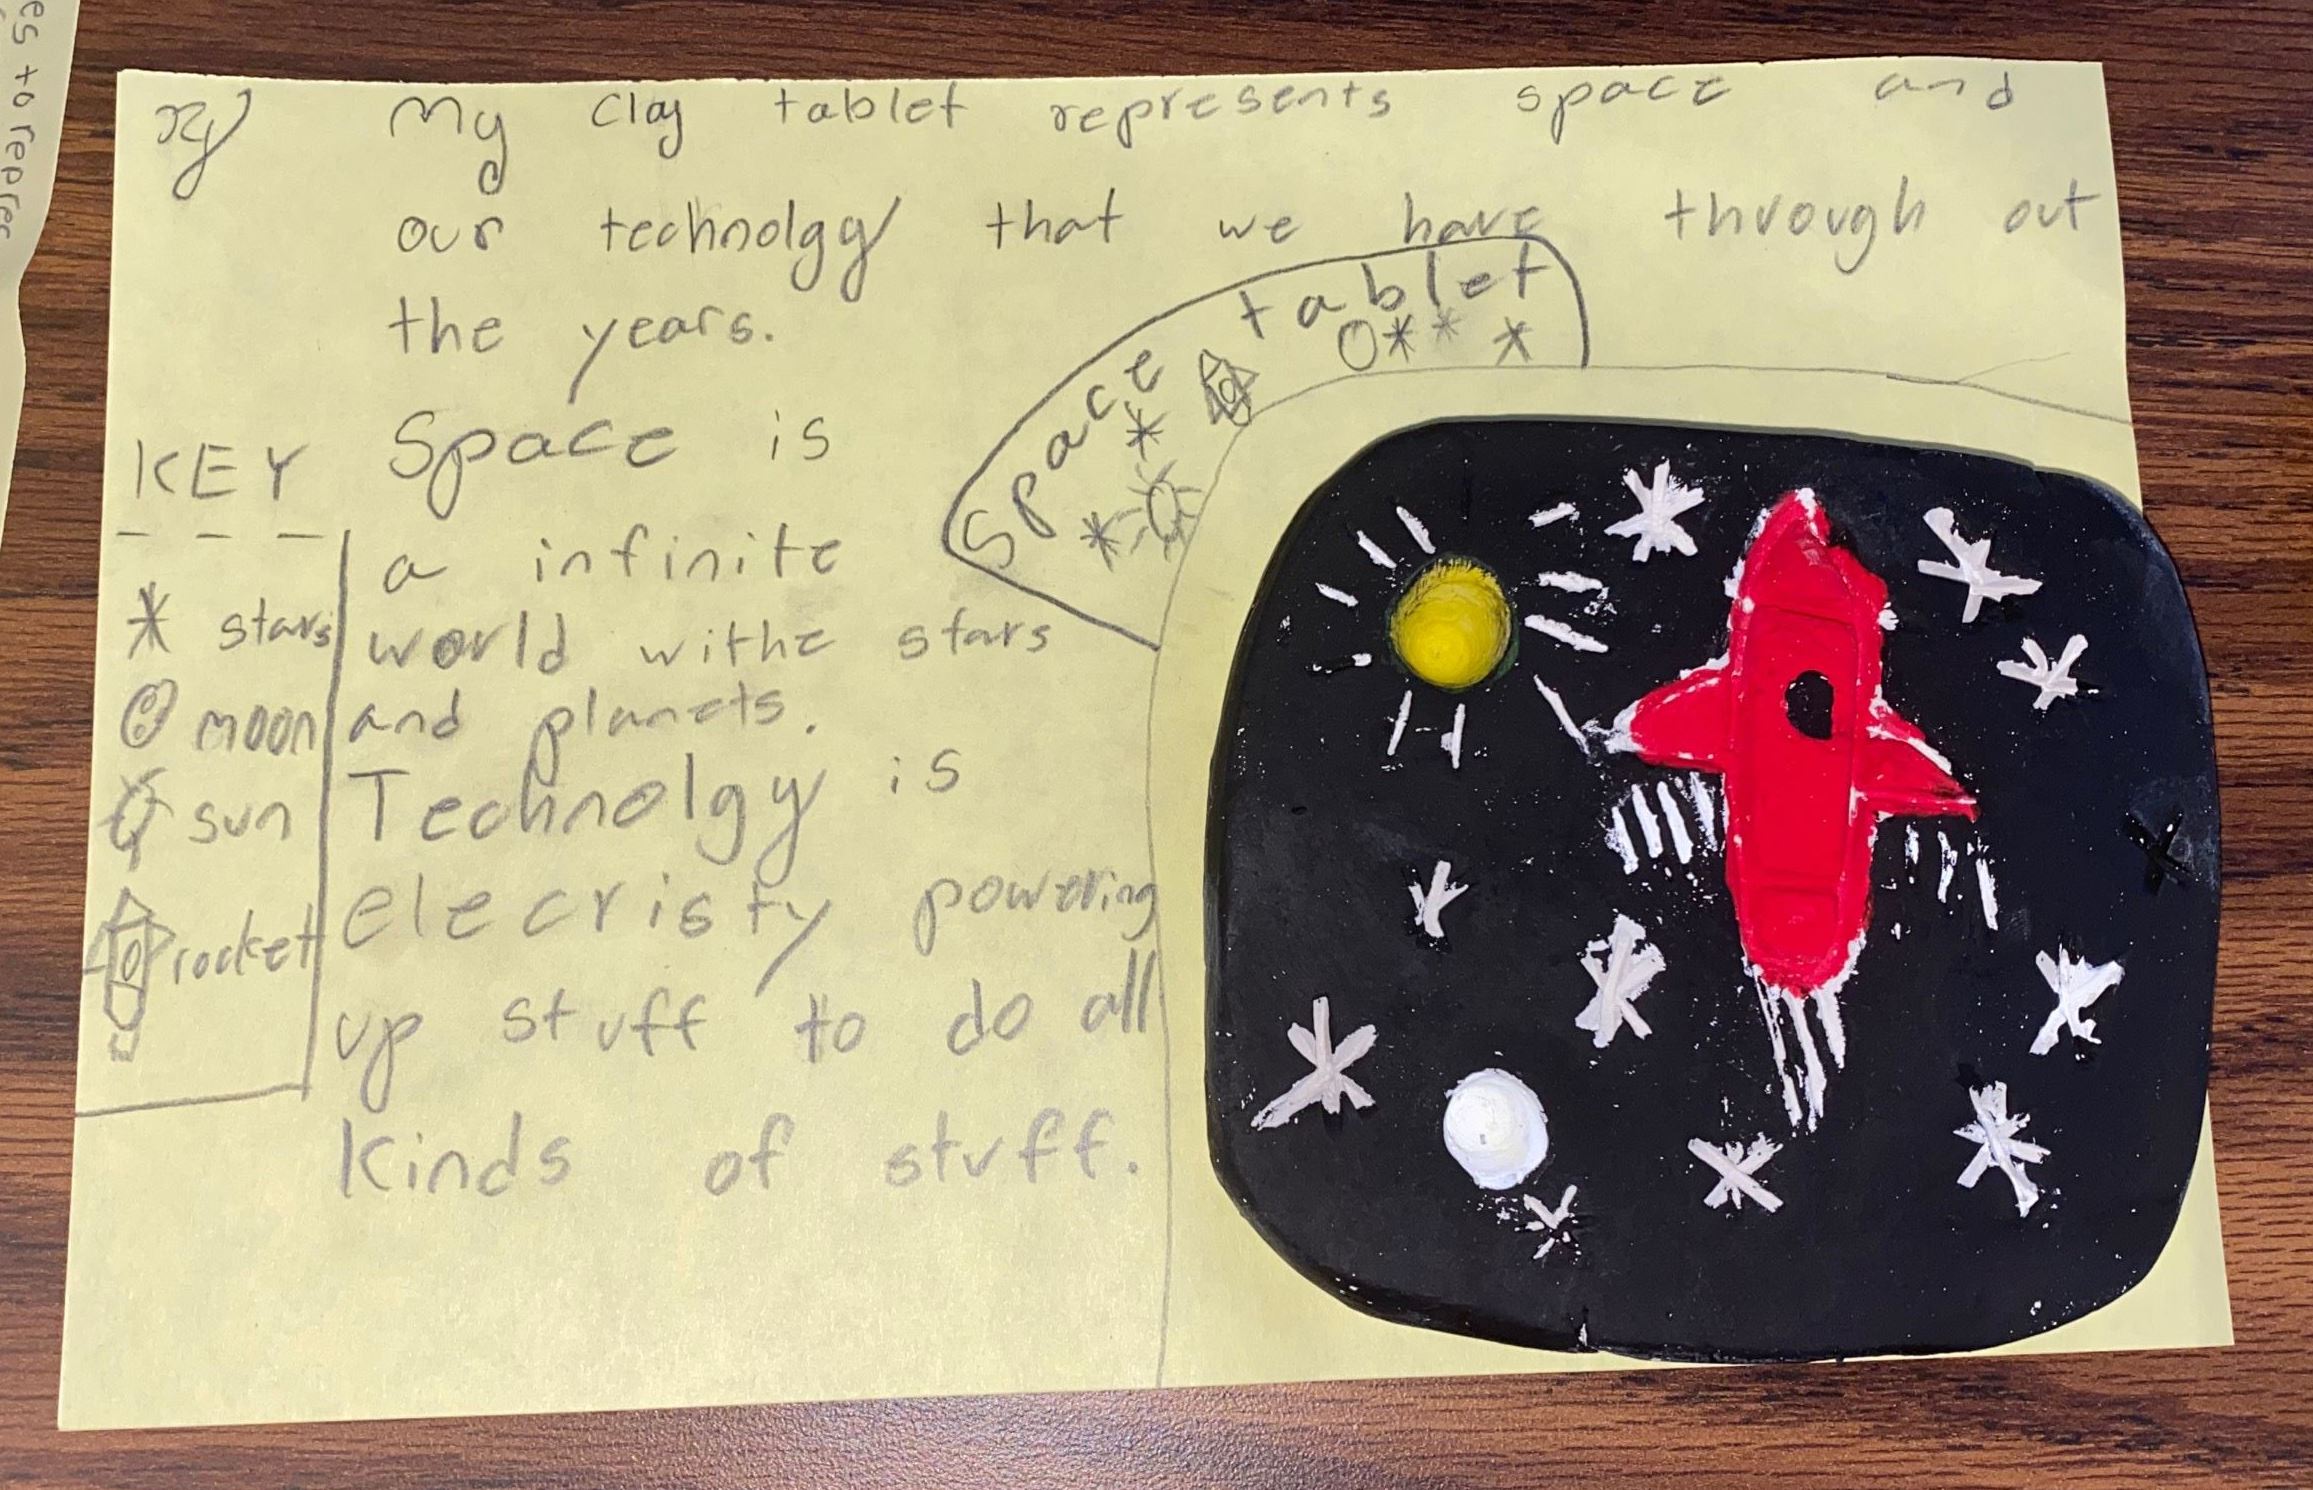 My clay tablet represents space and
our technolgy that we have through out
the years.
space tablet
Space is
a infinite
world withe stars
and planets.
Technolgy is
elecristy powering
up stuff to do all
kinds of stuff.
KEY
stars
moon
sun
rocket
es to repres